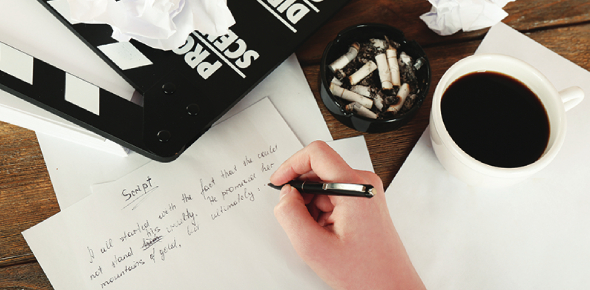 PROD
SCENE
DIRE
Script
It all started with the fact that she could
not stand his cruelty. He promised her
mountains of gold, but ultimately